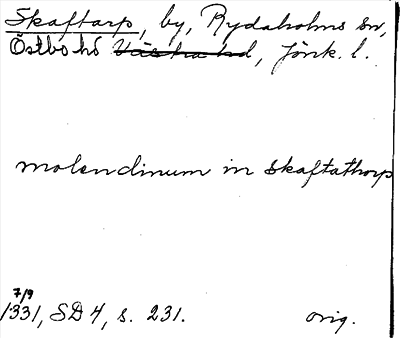 Skaftarp, by, Rydaholms sn,
Östbo hd Västra hd, Jönk. l.
molendinum in Skaftathorp
7/9
1331, SD 4, s. 231. orig.